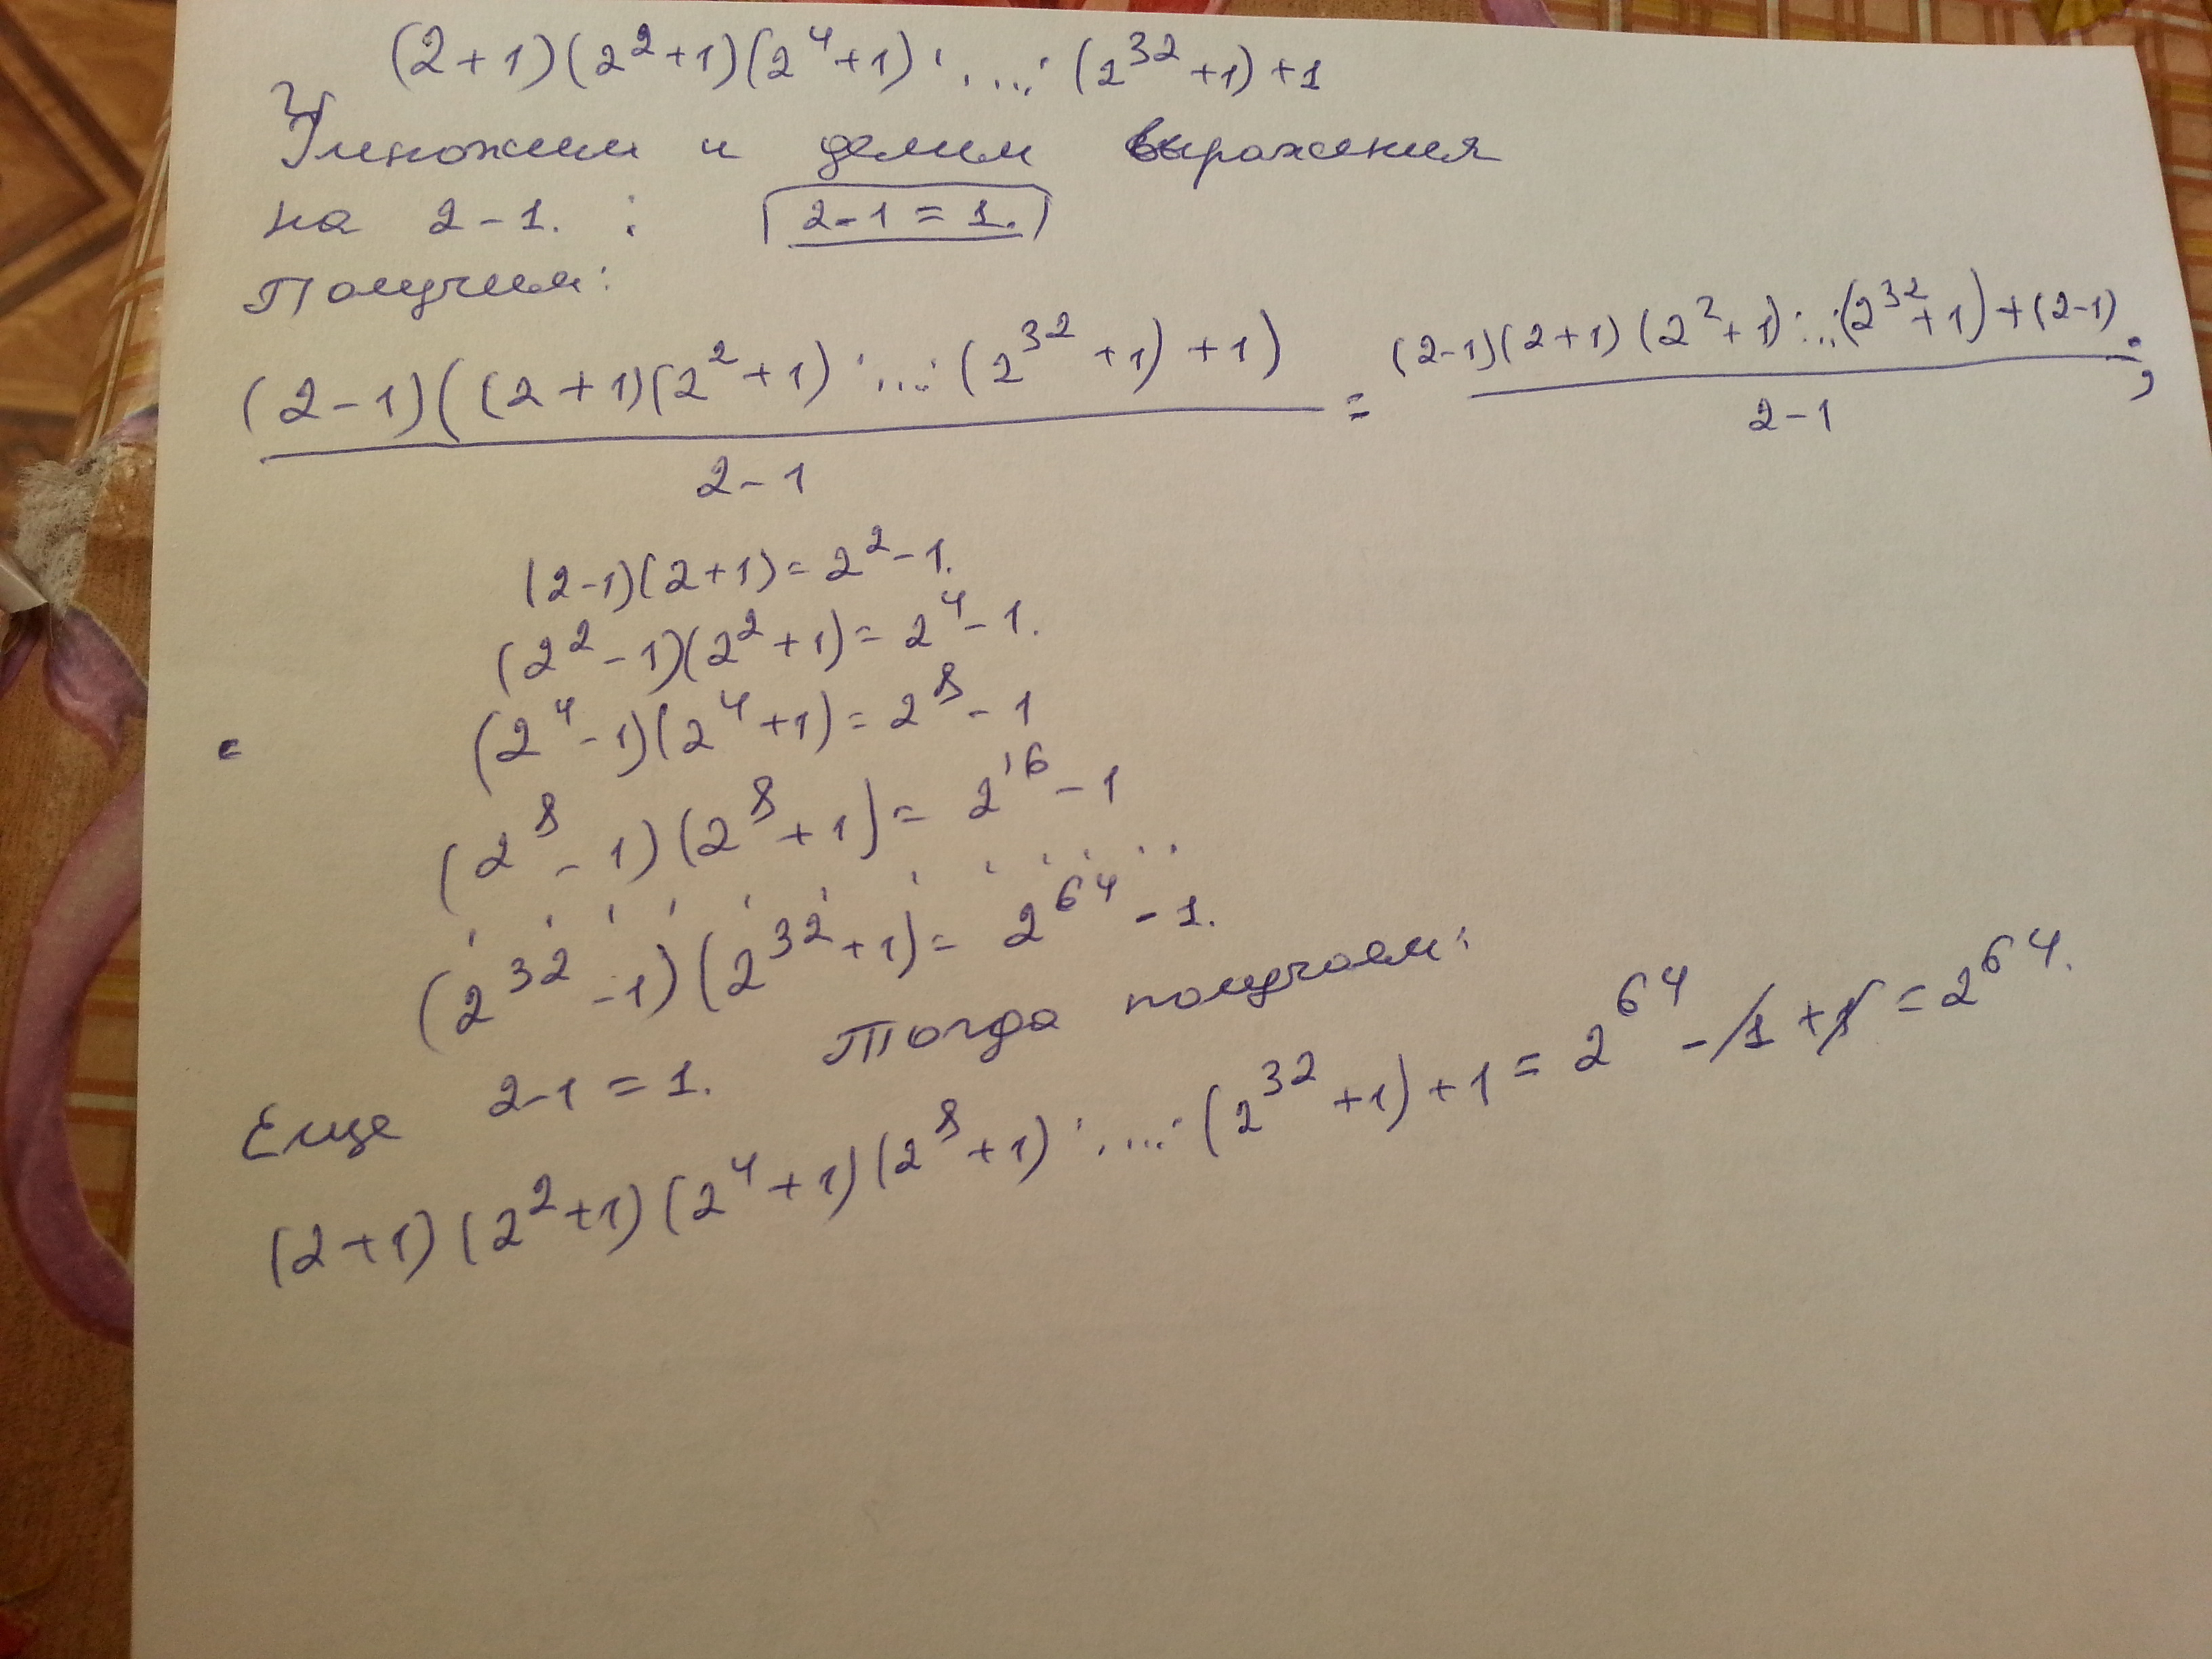 (2+1)(2²+1)(2⁴+1)·...·(2³²+1)+1
Умножим и делим выражения
на 2-1. : 2-1=1.
Получим:
(2-1)((2+1)(2²+1)·...·(2³²+1)+1) / 2-1 = (2-1)(2+1)(2²+1)·...·(2³²+1)+(2-1) / 2-1 ;
(2-1)(2+1)=2²-1.
(2²-1)(2²+1)=2⁴-1.
(2⁴-1)(2⁴+1)=2⁸-1
(2⁸-1)(2⁸+1)=2¹⁶-1
. . . . . . . . . . . .
(2³²-1)(2³²+1)=2⁶⁴-1.
Еще 2-1=1. Тогда получаем:
(2+1)(2²+1)(2⁴+1)(2⁸+1)·...·(2³²+1)+1=2⁶⁴-1+1=2⁶⁴.